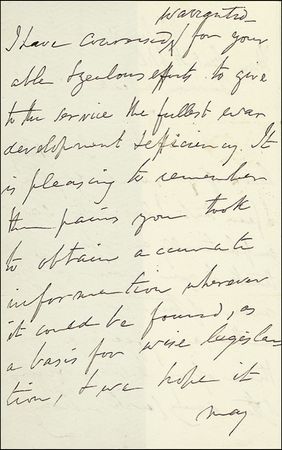 warranted
I have conversed, for your
able & zealous efforts to give
to the service the fullest
development & efficiency. It
is pleasing to remember
the pains you took
to obtain accurate
information wherever
it could be found, as
a basis for wise legisla-
tion, & we hope it
may